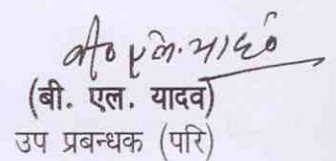 बी० एल. यादव
(बी. एल. यादव)
उप प्रबन्धक (परि)